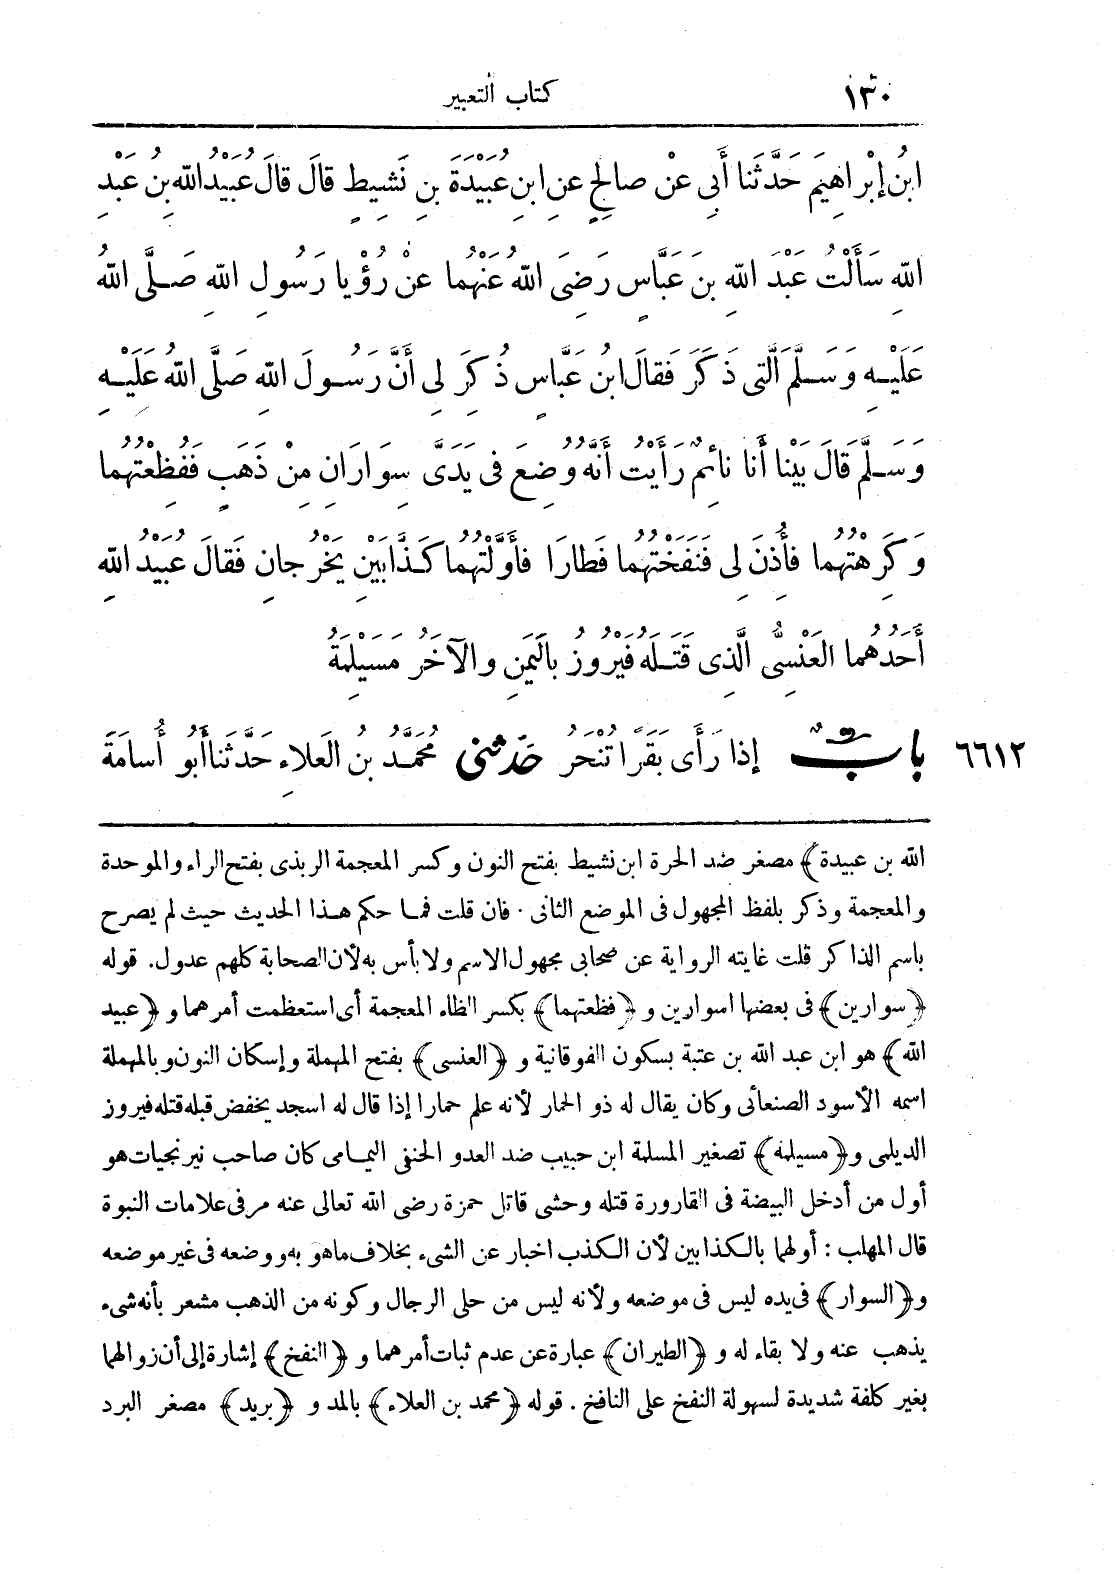 ١٣٠ كتاب التعبير
ابنُ إبْراهِيمَ حَدَّثَنا أَبِى عنْ صالِحٍ عنِ ابنِ عُبَيْدَةَ بنِ نَشِيطٍ قالَ قالَ عُبَيْدُ اللهِ بنُ عَبْدِ
اللهِ سَأَلْتُ عَبْدَ اللهِ بنَ عَبَّاسٍ رَضِىَ اللهُ عنْهُما عنْ رُؤْيا رَسُولِ اللهِ صَلَّى اللهُ
عَلَيْهِ وَسَلَّمَ الَّتِى ذَكَرَ فَقالَ ابنُ عَبَّاسٍ ذُكِرَ لِى أَنَّ رَسُولَ اللهِ صَلَّى اللهُ عَلَيْهِ
وَسَلَّمَ قالَ بَيْنا أَنا نائِمٌ رَأَيْتُ أَنَّهُ وُضِعَ فى يَدَىَّ سِوَارَانِ مِنْ ذَهَبٍ فَفُظِعْتُهُما
وَكَرِهْتُهُما فأُذِنَ لِى فَنَفَخْتُهُما فَطارَا فأَوَّلْتُهُما كَذَّابَيْنِ يَخْرُجانِ فَقالَ عُبَيْدُ اللهِ
أَحَدُهُما العَنْسِىُّ الَّذِى قَتَلَهُ فَيْرُوزُ بالْيَمَنِ والآخَرُ مُسَيْلِمَةُ
٦٦١٢ بابٌ إذا رَأَى بَقَرًا تُنْحَرُ حَدَّثنى مُحَمَّدُ بنُ العَلاءِ حَدَّثَنا أَبُو أُسامَةَ
الله بن عبيدة﴾ مصغر ضد الحرة ابن نشيط بفتح النون وكسر المعجمة الربذى بفتح الراء والموحدة
والمعجمة وذكر بلفظ المجهول فى الموضع الثانى . فان قلت فما حكم هذا الحديث حيث لم يصرح
باسم الذاكر قلت غايته الرواية عن صحابى مجهول الاسم ولا بأس به لأن الصحابة كلهم عدول. قوله
﴿سوارين﴾ فى بعضها اسوارين و ﴿فظعتهما﴾ بكسر الظاء المعجمة أى استعظمت أمرهما و ﴿عبيد
الله﴾ هو ابن عبد الله بن عتبة بسكون الفوقانية و ﴿العنسى﴾ بفتح المهملة وإسكان النون وبالمهملة
اسمه الأسود الصنعائى وكان يقال له ذو الحمار لأنه علم حمارا إذا قال له اسجد يخفض قبله قتله فيروز
الديلمى و﴿مسيلمة﴾ تصغير المسلمة ابن حبيب ضد العدو الحنفى اليمامى كان صاحب نيرنجيات هو
أول من أدخل البيضة فى القارورة قتله وحشى قاتل حمزة رضى الله تعالى عنه مر فى علامات النبوة
قال المهلب : أولهما بالكذابين لأن الكذب اخبار عن الشىء بخلاف ماهو به ووضعه فى غير موضعه
و﴿السوار﴾ فى يده ليس فى موضعه ولأنه ليس من حلى الرجال وكونه من الذهب مشعر بأنه شىء
يذهب عنه ولا بقاء له و ﴿الطيران﴾ عبارة عن عدم ثبات أمرهما و ﴿النفخ﴾ إشارة إلى أن زوالهما
بغير كلفة شديدة لسهولة النفخ على النافخ . قوله ﴿محمد بن العلاء﴾ بالمد و ﴿بريد﴾ مصغر البرد